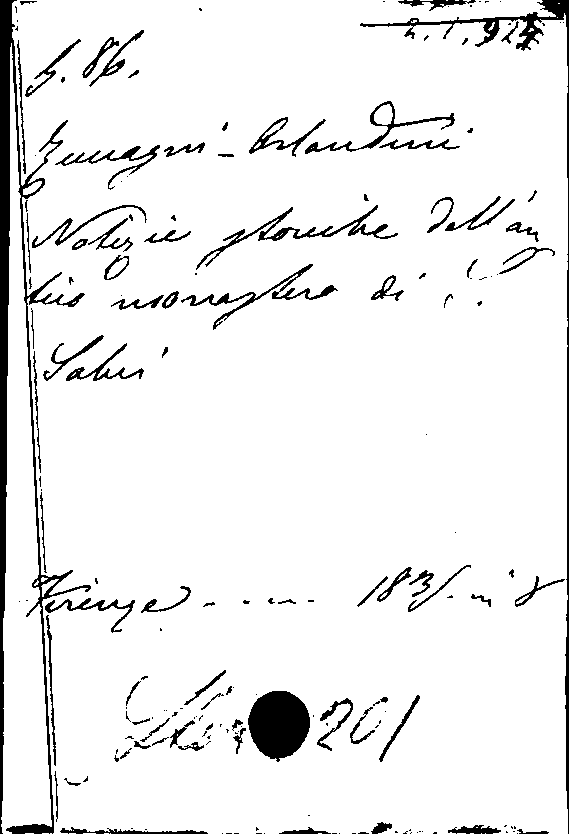 2.1.924
G. 86.
Zuccagni-Orlandini
Notizie storiche dell'an
tico monastero di S.
Salvi
Firenze ..... 183/. in 8
201